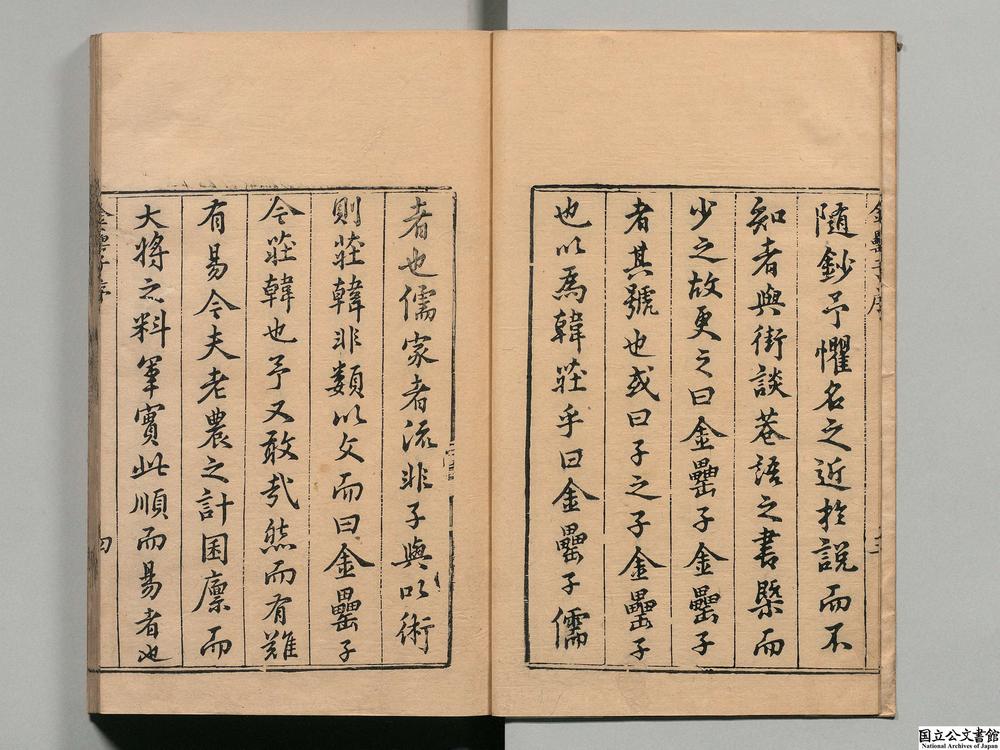 隨鈔予懼名之近於說而不
知者與街談巷語之書槩而
少之故更之曰金罍子金罍子
者其號也或曰子之子金罍子
也以爲韓莊乎曰金罍子儒
者也儒家者流非子與以術
則莊韓非類以文而曰金罍子
今莊韓也予又敢哉然而有難
有易今夫老農之計囷廪而
大將之料軍實此順而易者也
四
国立公文書館
National Archives of Japan